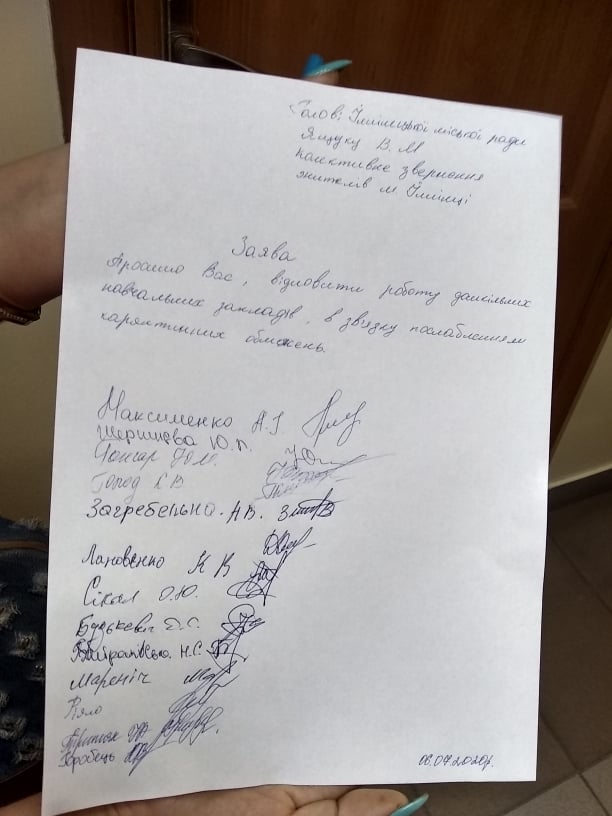 Голові Іллінецької міської ради
Ящуку В. М
колективне звернення
жителів м Іллінці
Заява
Просимо Вас, відновити роботу дошкільних
навчальних закладів, в зв'язку послабленням
карантинних обмежень.
Максименко А.
Ю.П.
Гончар Ю.М.
Голод В
Загребельна. А В.
Лановенко К К
Сікал О.Ю.
Будькевич С.
Н.С.
Маренич
Горобець
08.07.2020р.